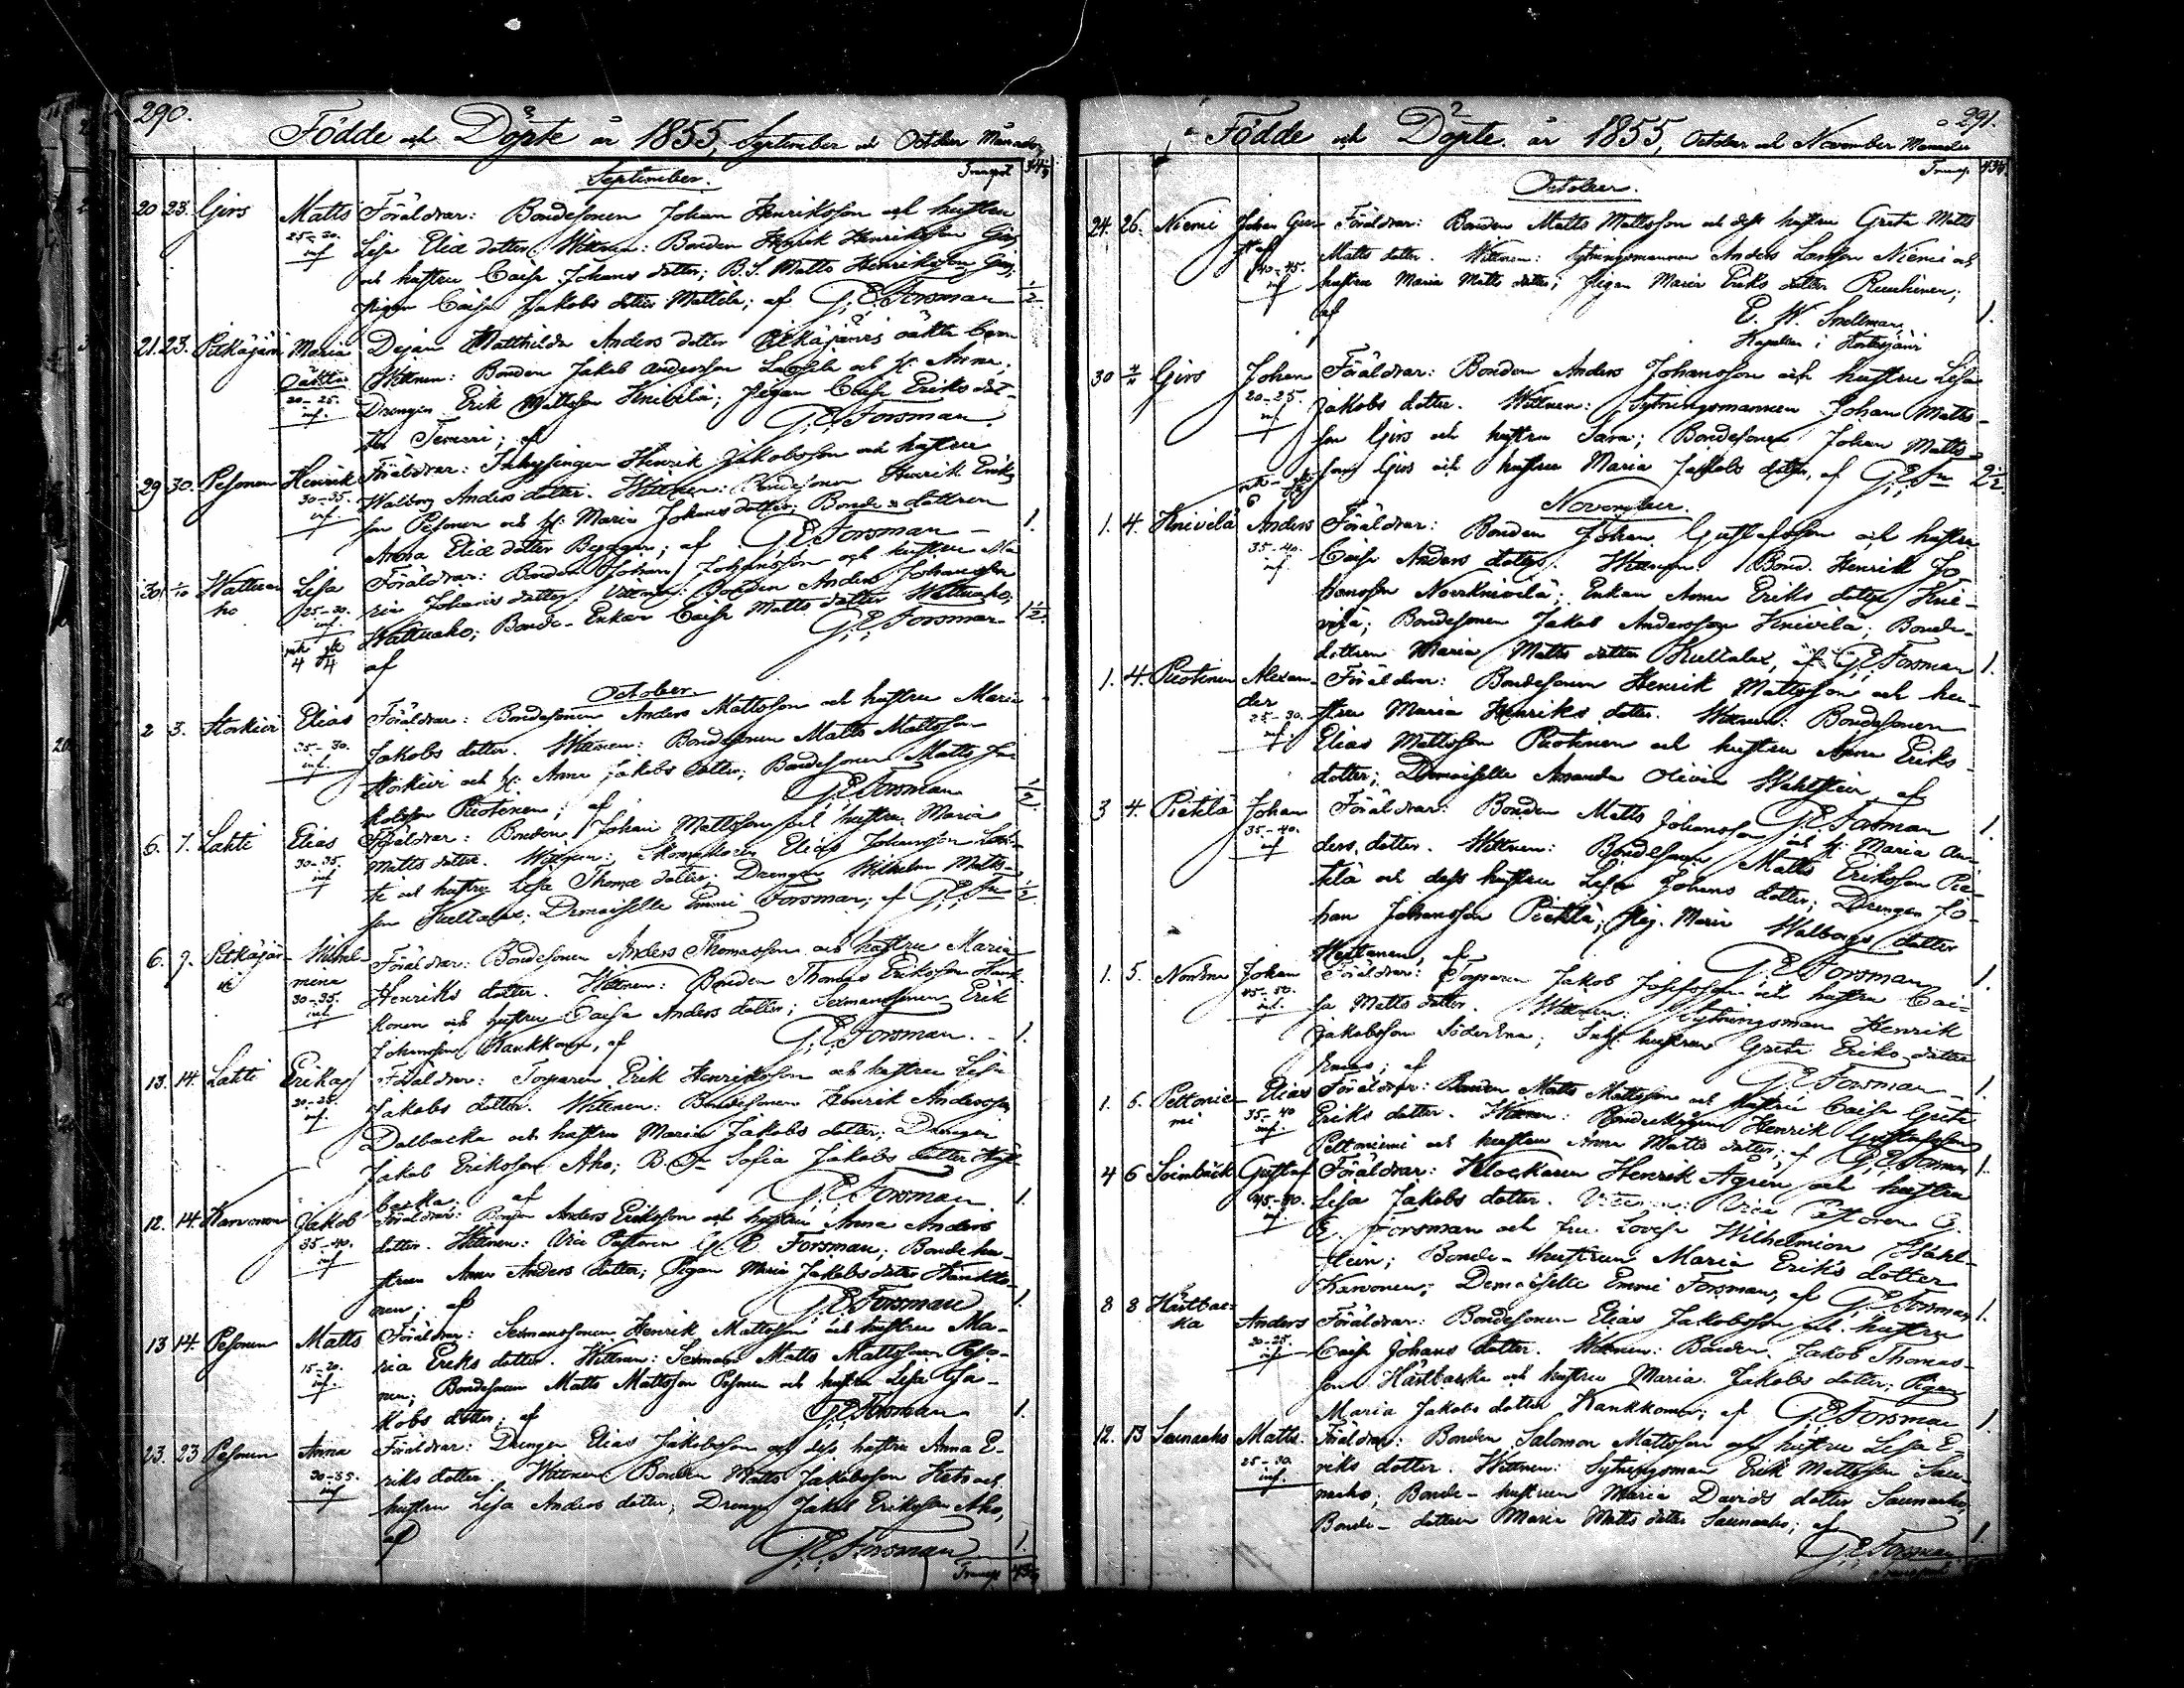 290.
Födde och Döpte år 1855, September och October Månader
Transport
September.
20 23. Girs Matts Föräldrar: Bondesonen Johan Henriksson och hustru
25-30. inf Lisa Eliæ dotter. Wittnen: Bonden Henrik Henriksson Girs
och hustru Caisa Johans dotter; B.S. Matts Henriksson Girs;
pigan Caisa Jakobs dotter Mattila; af G.E. Forsman 1/2
21. 23. Pitkäjärvi Maria Dejan Matthilda Anders dotter Pitkäjärvis oäkta barn
oäkta Wittnen: Bonden Jakob Andersson Lassila och h: Anna;
20-25. inf. Drengen Erik Mattsson Knivilä; Pigan Caisa Eriks dot-
ter; af G.E. Forsman.
29 30. Pesonen Henrik Föräldrar: Inhysingen Henrik Jakobsson och hustru
30-35. inf. Walborg Anders dotter. Wittnen: Bondesonen Henrik Eriks
son Pesonen och h: Maria Johans dotter; Bonde dottren
Anna Eliæ dotter; af G.E. Forsman 1.
30. 1/10 Wattuaho Lisa Föräldrar: Bonden Johan Johansson och hustru Ma
25-30. inf. ria Johans dotter. Wittnen: Bonden Anders Johansson
Wattuaho; Bonde-Enkan Caisa Matts dotter Wattuaho; 1 1/2.
af G.E. Forsman
October.
2 3. Storkivi Elias Föräldrar: Bondesonen Anders Mattsson och hustru Maria
25-30. inf. Jakobs dotter. Wittnen: Bondesonen Matts Mattsson
Storkivi och h: Anna Jakobs dotter; Bondesonen Matts Ja-
kobsson Puotinen; af G.E. Forsman 1/2.
6. 7. Lahti Elias Föräldrar: Bonden Johan Mattsson och hustru Maria
30-35. inf Matts dotter. Wittnen: Skomakaren Elias Johansson Lah-
ti och hustru Lisa Thomæ dotter; Drengen Wilhelm Matts-
son Kultalax; Demoiselle Emmi Forsman; af G.E. Fn 1/2.
6. 7. Pitkäjär- Wilhel- Föräldrar: Bondesonen Anders Thomasson och hustru Maria
vi mina Henriks dotter. Wittnen: Bonden Thomas Eriksson Kank
30-35. inf. konen och hustru Caisa Anders dotter; Sexmanssonen Erik
Johansson Kankkonen, af G.E. Forsman. 1.
13. 14. Lahti Erika Föräldrar: Torparen Erik Henriksson och hustru Lisa
inf. Jakobs dotter. Wittnen: Bondesonen Henrik Andersson
Dalbacka och hustru Maria Jakobs dotter; Drengen
Jakob Eriksson Aho; B. Dr Sofia Jakobs dotter Häst
backa: af G.E. Forsman. 1.
12. 14. Karvonen Jakob Föräldrar: Bonden Anders Eriksson och hustru Anna Anders
35-40. inf dotter. Wittnen: Vice Pastoren G. E. Forsman; Bonde hu-
strun Anna Anders dotter; Pigan Maria Jakobs dotter Kankko-
nen; af G.E. Forsman 1.
13 14. Pesonen Matts Föräldrar: Sexmanssonen Henrik Mattsson och hustru Ma-
15-20. inf. ria Eriks dotter. Wittnen: Sexman Matts Mattsson Peso-
nen; Bondesonen Matts Mattsson Pesonen och hustru Lisa Ja-
kobs dotter; af G.E. Forsman 1.
23. 23 Pesonen Anna Föräldrar: Drengen Elias Jakobsson och dess hustru Anna E-
30-35. inf riks dotter. Wittnen: Bonden Matts Jakobsson Keto och
hustru Lisa Anders dotter; Drengen Jakob Eriksson Aho,
af G.E. Forsman 1.
Transp
291.
Födde och Döpte år 1855, October och November Månader
Transp. 434
October.
24. 26. Niemi Johan Gus- Föräldrar: Bonden Matts Mattsson och dess hustru Greta Matts
taf Matts dotter. Wittnen: Sytningsmannen Anders Larsson Niemi och
40-45. inf hustru Maria Matts dotter; Pigan Maria Eriks dotter;
af E. W. Snellman, 1.
Kapellan i Kortesjärvi
30 Girs Johan Föräldrar: Bonden Anders Johansson och hustru Lisa
20-25. inf Jakobs dotter. Wittnen: Sytningsmannen Johan Matts-
son Girs och hustru Sara; Bondesonen Johan Matts-
son Girs och hustru Maria Jakobs dotter, af G.E. Fn 2 1/2.
November.
1. 4. Knivilä Anders Föräldrar: Bonden Johan Gustafsson och hustru
35-40. inf. Caisa Anders dotter. Wittnen: Bond. Henrik Jo
hansson Norrknivilä; Enkan Anna Eriks dotter Kni-
vilä; Bondesonen Jakob Andersson Knivilä; Bonde-
dottren Maria Matts dotter Kultalax, af G.E. Forsman 1.
1. 4. Puotinen Alexan- Föräldrar: Bondesonen Henrik Mattsson och hu-
der stru Maria Henriks dotter. Wittnen: Bondesonen
25-30. inf. Elias Mattsson Puotinen och hustru Anna Eriks-
dotter; Demoiselle Amanda Olivia Wahlstein, af
G.E. Forsman 1.
3 4. Pietilä Johan Föräldrar: Bonden Matts Johansson och h: Maria An-
35-40. inf ders dotter. Wittnen: Bondesonen Matts Eriksson Pie-
tilä och dess hustru Lisa Johans dotter; Drengen Jo-
han Johansson Pietilä; Pig. Maria Walborgs dotter
af G.E. Forsman 1.
1. 5. Johan Föräldrar: Torparen Jakob Josefsson och hustru Cai-
45-50. inf. sa Matts dotter. Wittnen: Sytningsman Henrik
Jakobsson; Inh. hustrun Greta Eriks dotter
af G.E. Forsman 1.
1. 5. Peltonie- Elias Föräldrar: Bonden Matts Mattsson och hustru Caisa Greta
mi 35-40 inf. Eriks dotter. Wittnen: Henrik Gustafsson
Peltoniemi och hustru Anna Matts dotter; af G.E. Forsman 1.
4 6 Soinibäck Gustaf Föräldrar: Klockaren Henrik Ågren och hustru
45-50. inf. Lisa Jakobs dotter. Wittnen: Vice Pastoren G.
E. Forsman och fru Lovisa Wilhelmina Wahl-
stein; Bonde-hustrun Maria Eriks dotter
Karvonen; Demoiselle Emmi Forsman, af G.E. Forsman 1.
8 8 Hästbac- Anders Föräldrar: Bondesonen Elias Jakobsson och hustru
ka 20-25. inf Caisa Johans dotter. Wittnen: Bonden Jakob Thomas-
son Hästbacka och hustru Maria Jakobs dotter; Pigan
Maria Jakobs dotter Kankkonen; af G.E. Forsman 1.
12. 13 Saunaaho Matts. Föräldrar: Bonden Salomon Mattsson och hustru Lisa E-
25-30. inf. riks dotter. Wittnen: Sytningsman Erik Mattsson Sau-
naaho; Bonde-hustrun Maria Davids dotter Saunaaho,
Bonde-dottren Maria Matts dotter Saunaaho; af
G.E. Forsman 1.